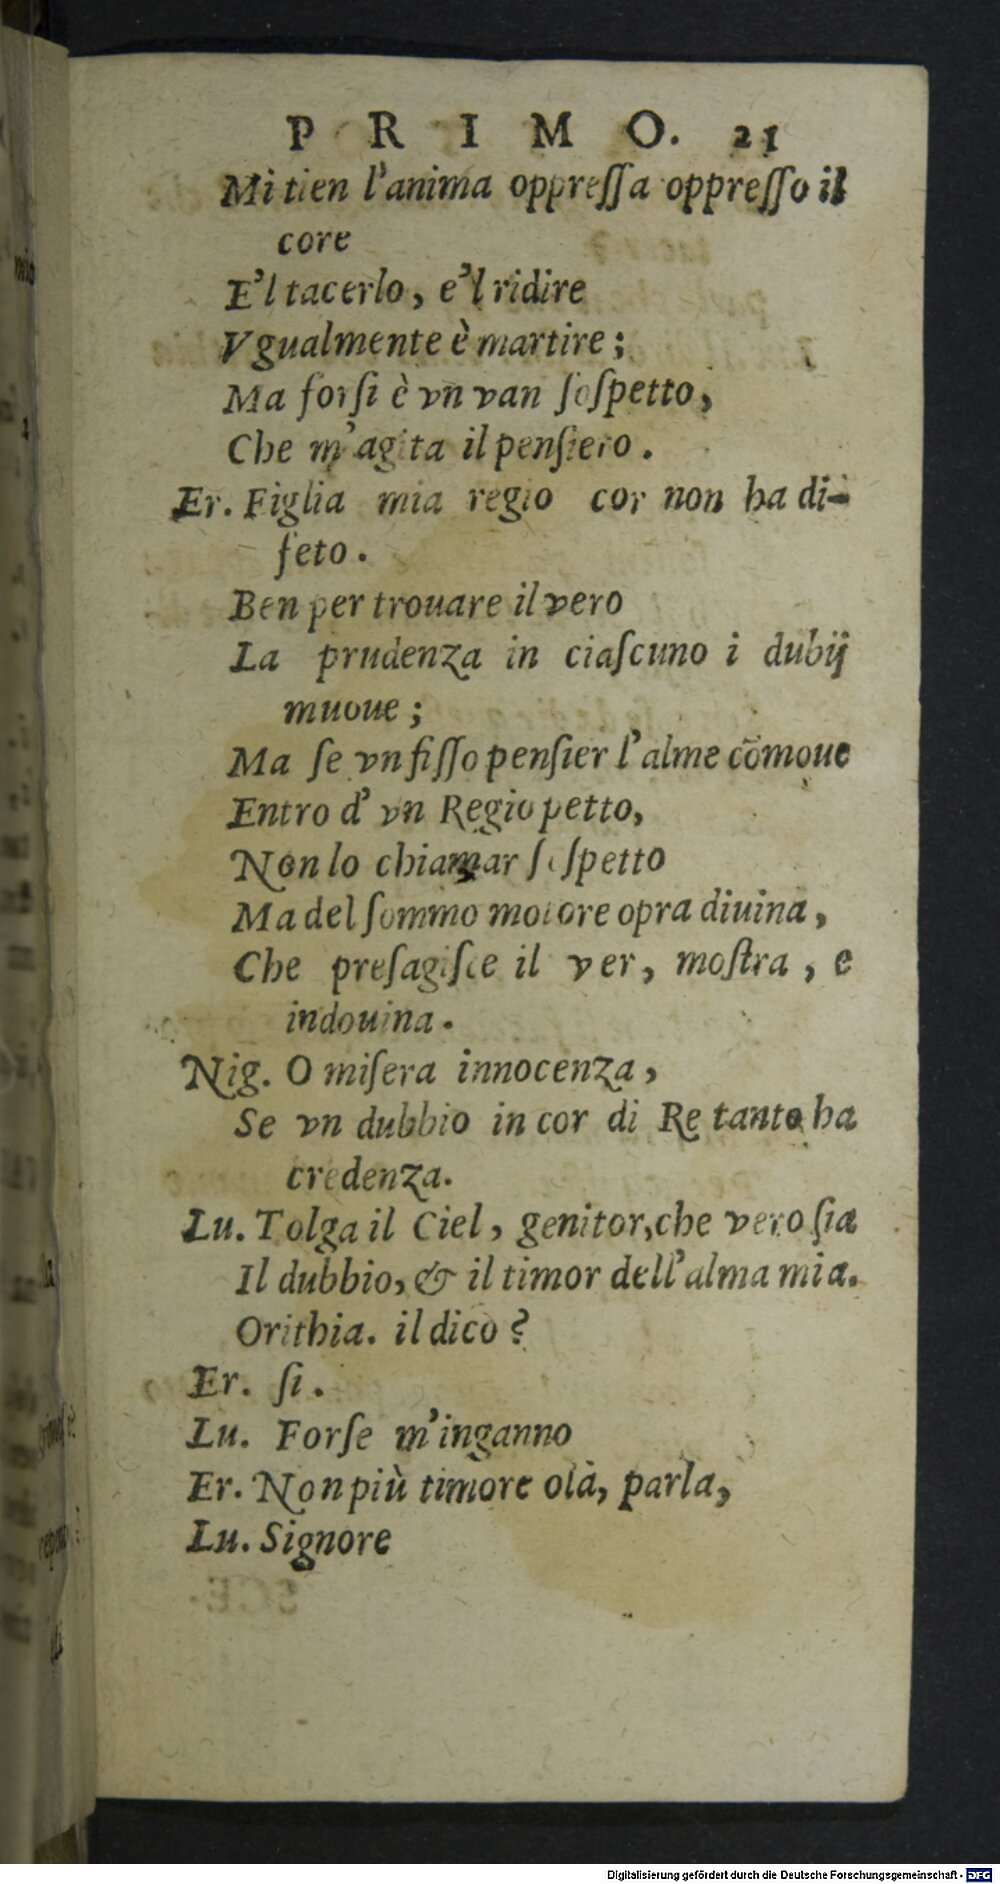 PRIMO. 21
Mi tien l'anima oppreſſa oppreſſo il
core
E'l tacerlo, e'l ridire
Vgualmente è martire;
Ma forſi è vn van ſoſpetto,
Che m'agita il penſiero.
Er. Figlia mia regio cor non ha di-
feto.
Ben per trouare il vero
La prudenza in ciaſcuno i dubij
muoue;
Ma ſe vn fiſſo penſier l'alme cõmoue
Entro d'vn Regio petto,
Non lo chiamar ſoſpetto
Ma del ſommo motore opra diuina,
Che preſagiſce il ver, moſtra, e
indouina.
Nig. O miſera innocenza,
Se vn dubbio in cor di Re tanto ha
credenza.
Lu. Tolga il Ciel, genitor, che vero ſia
Il dubbio, & il timor dell'alma mia.
Orithia. il dico?
Er. ſi.
Lu. Forſe m'inganno
Er. Non più timore olà, parla,
Lu. Signore
Digitalisierung gefördert durch die Deutsche Forschungsgemeinschaft - DFG